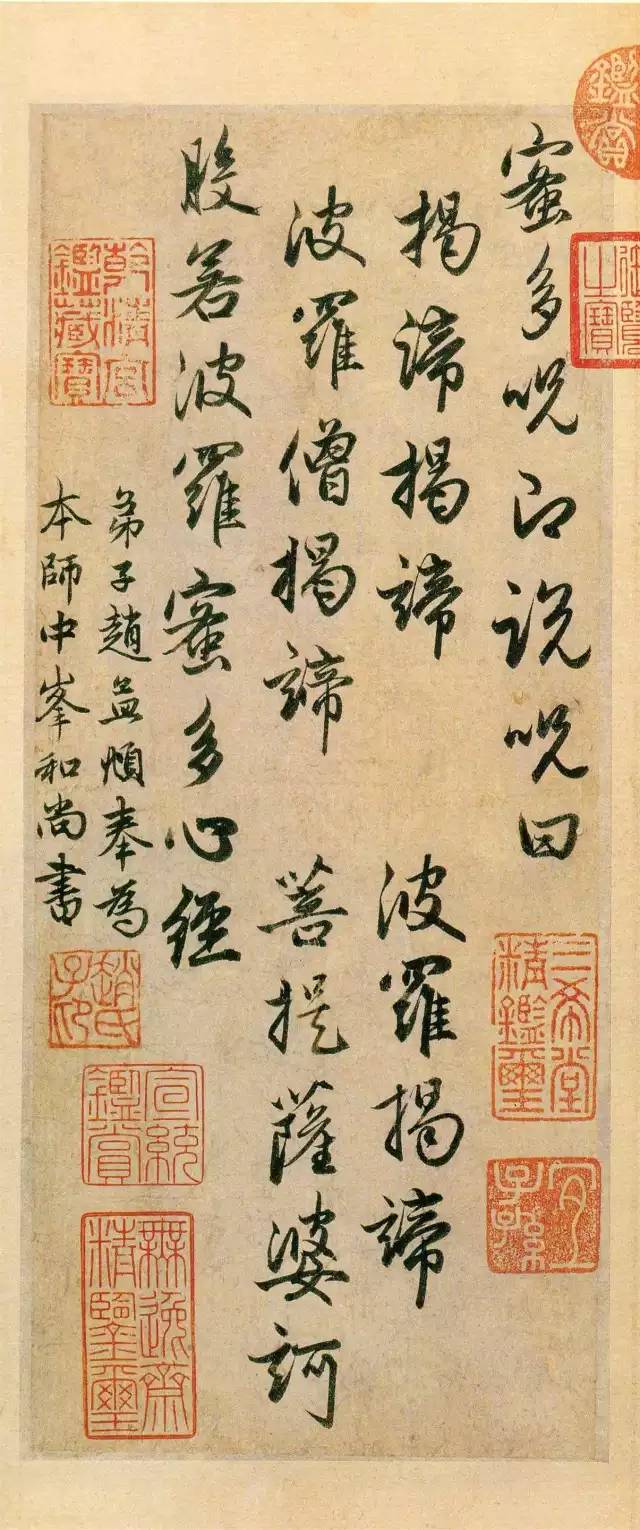 蜜多呪即說呪曰
揭諦揭諦 波羅揭諦
波羅僧揭諦 菩提薩婆訶
般若波羅蜜多心經
弟子趙孟頫奉為
本師中峯和尚書
乾清宮
鑑藏寶
趙氏
子印
宣統
鑑賞
無逸齋
精鑒璽
三希堂
精鑑璽
宜
子孫
鑑賞
御覽
之寶